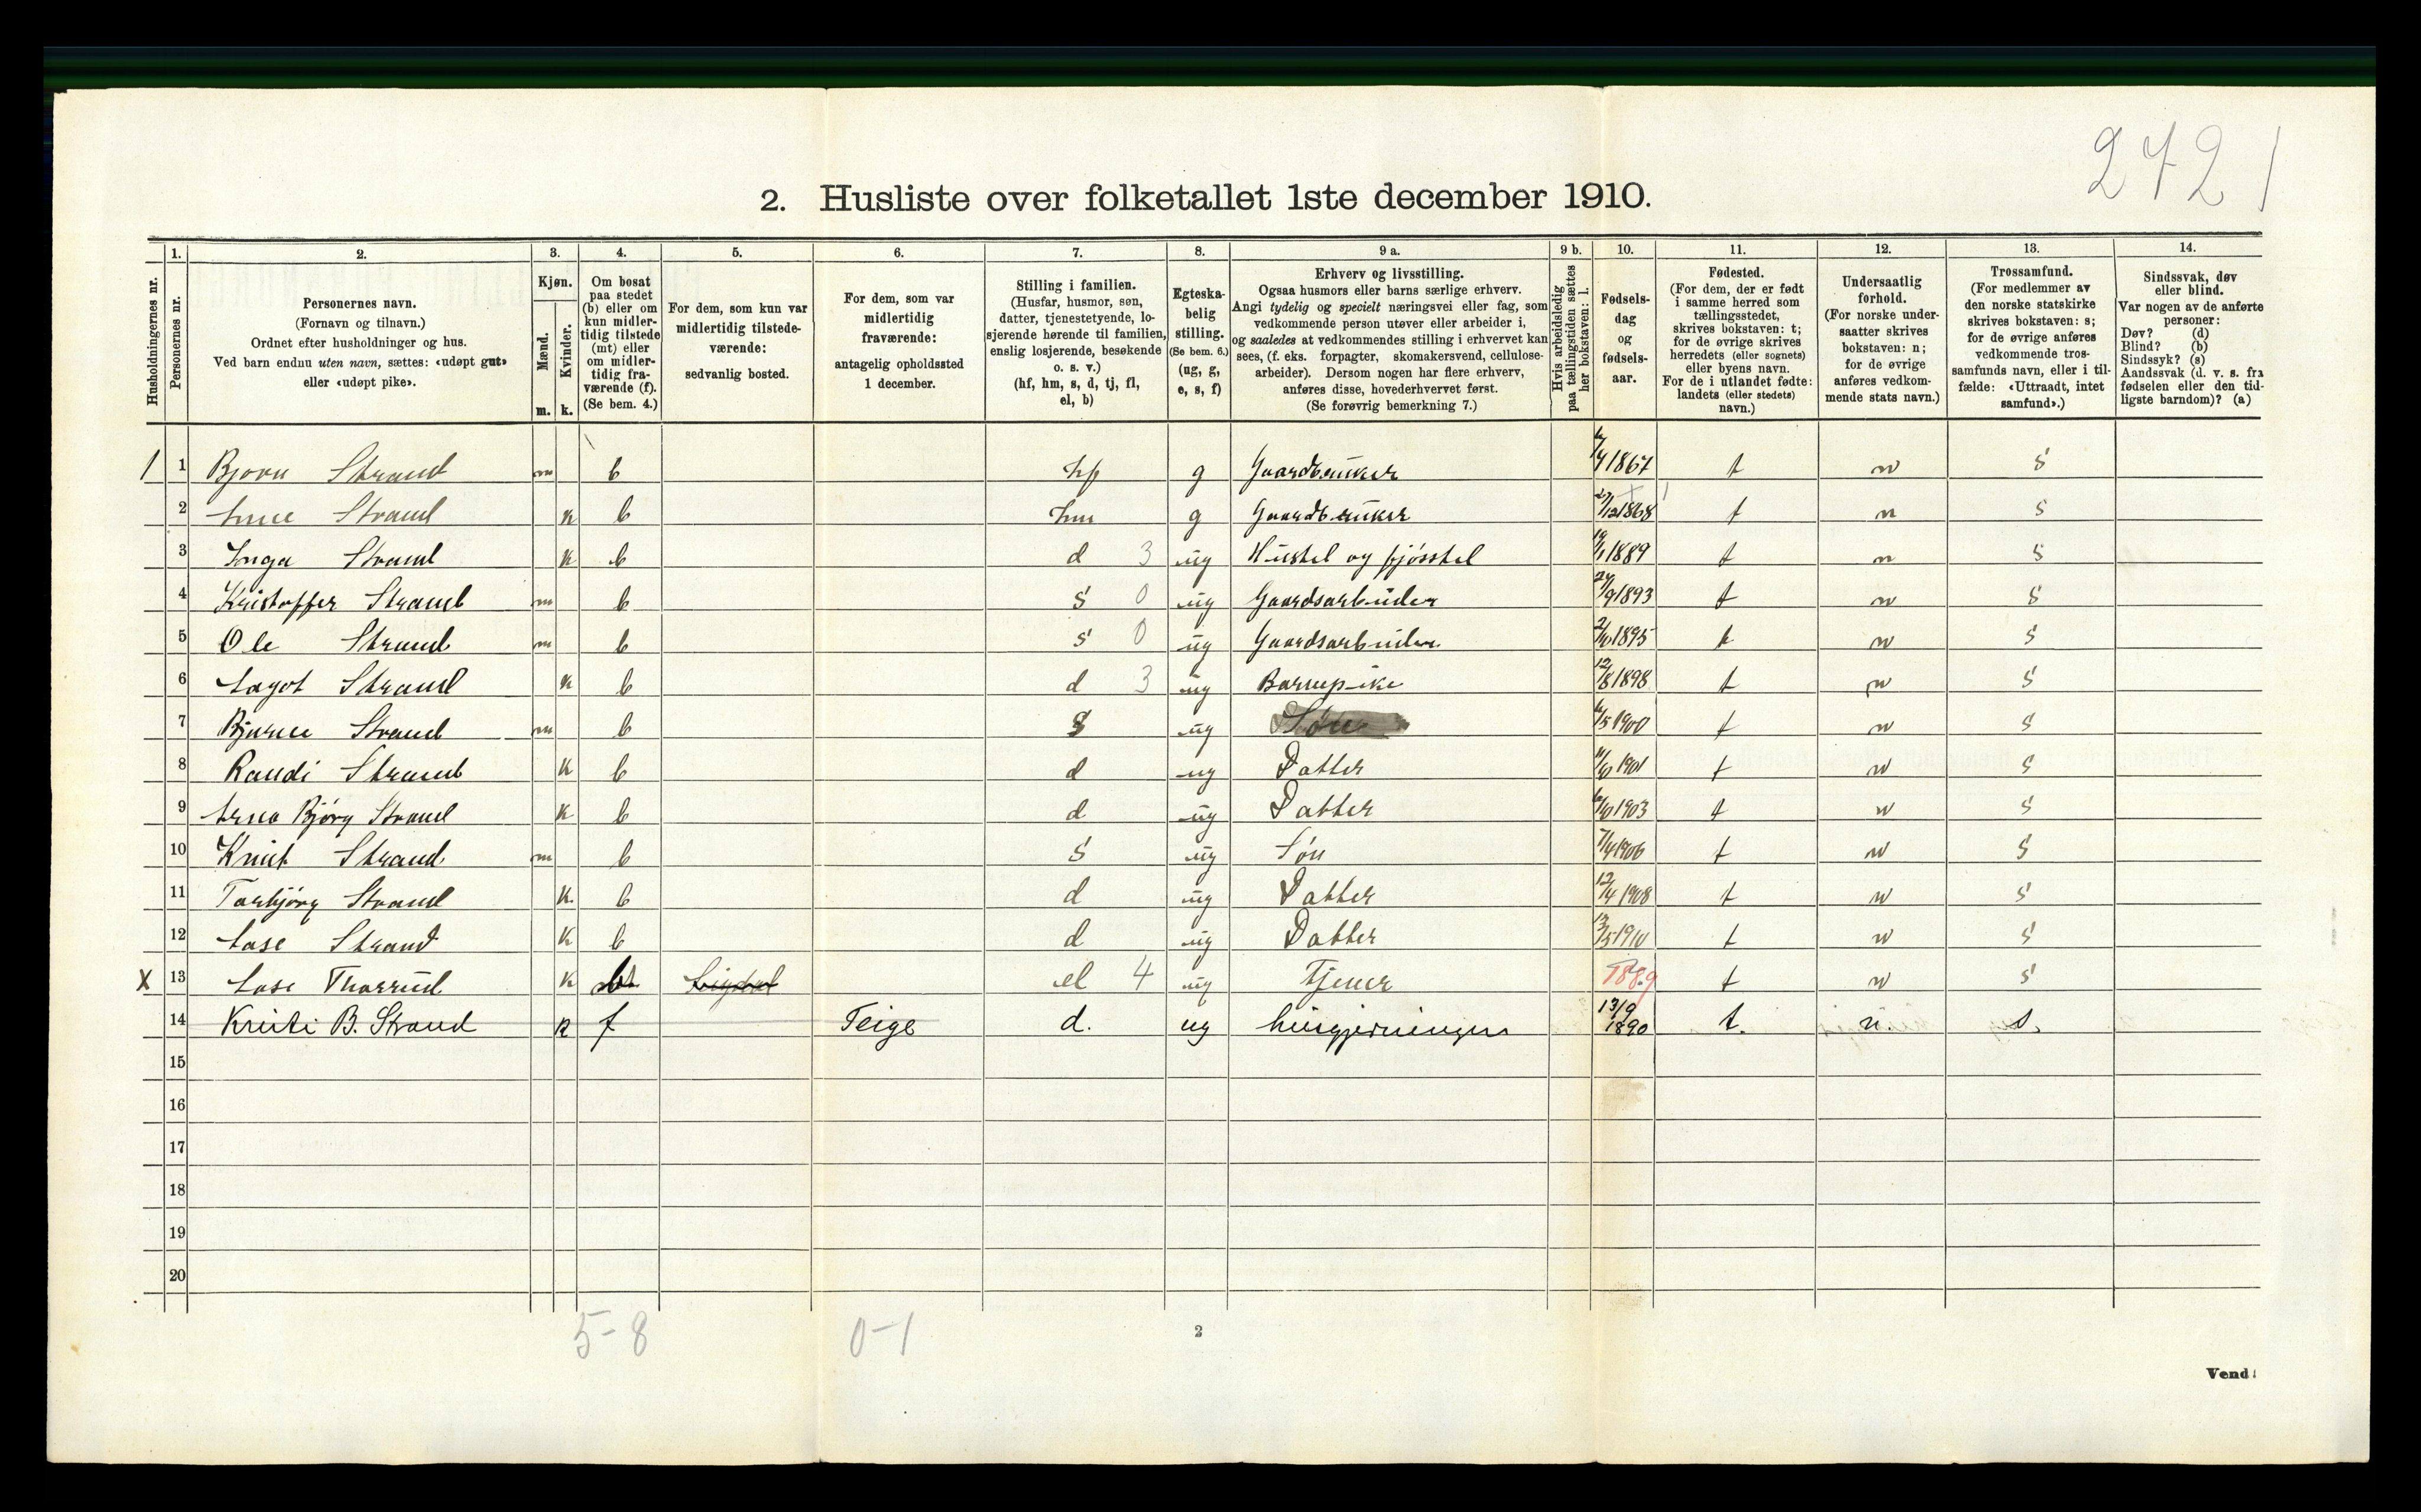 2421
2. Husliste over folketallet 1ste december 1910.
Husholdningernes nr.
1. Personernes nr.
2. Personernes navn.
(Fornavn og tilnavn.)
Ordnet efter husholdninger og hus.
Ved barn endnu uten navn, sættes: «udøpt gut»
eller «udøpt pike».
3. Kjøn.
Mænd. m.
Kvinder. k.
4. Om bosat
paa stedet
(b) eller om
kun midler-
tidig tilstede
(mt) eller
om midler-
tidig fra-
værende (f).
(Se bem. 4.)
5. For dem, som kun var
midlertidig tilstede-
værende:
sedvanlig bosted.
6. For dem, som var
midlertidig
fraværende:
antagelig opholdssted
1 december.
7. Stilling i familien.
(Husfar, husmor, søn,
datter, tjenestetyende, lo-
sjerende hørende til familien,
enslig losjerende, besøkende
o. s. v.)
(hf, hm, s, d, tj, fl,
el, b)
8. Egteska-
belig
stilling.
(Se bem. 6.)
(ug, g,
e, s, f)
9 a. Erhverv og livsstilling.
Ogsaa husmors eller barns særlige erhverv.
Angi tydelig og specielt næringsvei eller fag, som
vedkommende person utøver eller arbeider i,
og saaledes at vedkommendes stilling i erhvervet kan
sees, (f. eks. forpagter, skomakersvend, cellulose-
arbeider). Dersom nogen har flere erhverv,
anføres disse, hovederhvervet først.
(Se forøvrig bemerkning 7.)
9 b. Hvis arbeidsledig
paa tællingstiden sættes
her bokstaven: l.
10. Fødsels-
dag
og
fødsels-
aar.
11. Fødested.
(For dem, der er født
i samme herred som
tællingsstedet,
skrives bokstaven: t;
for de øvrige skrives
herredets (eller sognets)
eller byens navn.
For de i utlandet fødte:
landets (eller stedets)
navn.)
12. Undersaatlig
forhold.
(For norske under-
saatter skrives
bokstaven: n;
for de øvrige
anføres vedkom-
mende stats navn.)
13. Trossamfund.
(For medlemmer av
den norske statskirke
skrives bokstaven: s;
for de øvrige anføres
vedkommende tros-
samfunds navn, eller i til-
fælde: «Uttraadt, intet
samfund».)
14. Sindssvak, døv
eller blind.
Var nogen av de anførte
personer:
Døv? (d)
Blind? (b)
Sindssyk? (s)
Aandssvak (d. v. s. fra
fødselen eller den tid-
ligste barndom)? (a)
1 1 Bjørn Strand m b hf g Gaardbruker 1867 t n s
2 Strand k b hm g Gaardbruker 27/12 1868 t n s
3 Inga Strand k b d 3 ug Husstel og fjøsstel 19/1 1889 t n s
4 Kristoffer Strand m b s 0 ug Gaardsarbeider 24/9 1893 t n s
5 Ole Strand m b s 0 ug Gaardsarbeider 1895 t n s
6 Aagot Strand k b d 3 ug Barnepike 12/8 1898 t n s
7 Bjarne Strand m b s ug Søn 6/5 1900 t n s
8 Randi Strand k b d ug Datter 1901 t n s
9 Anna Bjørg Strand k b d ug Datter 1903 t n s
10 Knut Strand m b s ug Søn 7/4 1906 t n s
11 Torbjørg Strand k b d ug Datter 12/4 1908 t n s
12 Aase Strand k b d ug Datter 13/5 1910 t n s
X 13 Aase Thorrud k b Sigdal el 4 ug Tjener 1889 t n s
14 Kristi B. Strand k f Teige d. ug husgjerningen 13/9 1890 t. n. s.
15
16
17
18
19
20
5-8 0-1
2
Vend!